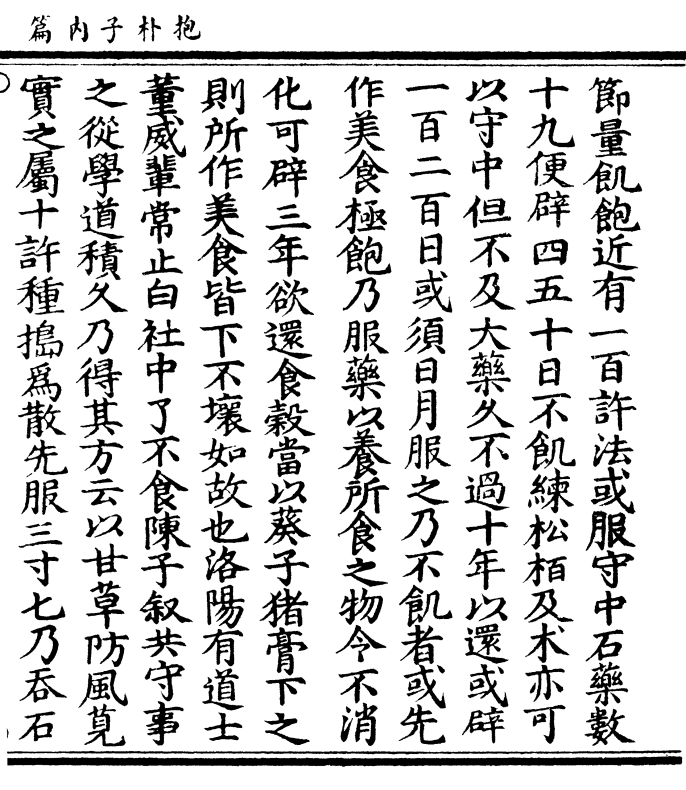 抱朴子内篇
節量飢飽近有一百許法或服守中石藥數
十九便辟四五十日不飢練松柏及朮亦可
以守中但不及大藥久不過十年以還或辟
一百二百日或須日月服之乃不飢者或先
作美食極飽乃服藥以養所食之物令不消
化可辟三年欲還食穀當以葵子猪膏下之
則所作美食皆下不壞如故也洛陽有道士
董威輦常止白社中了不食陳子叙共守事
之從學道積久乃得其方云以甘草防風莧
實之屬十許種搗爲散先服三寸七乃吞石